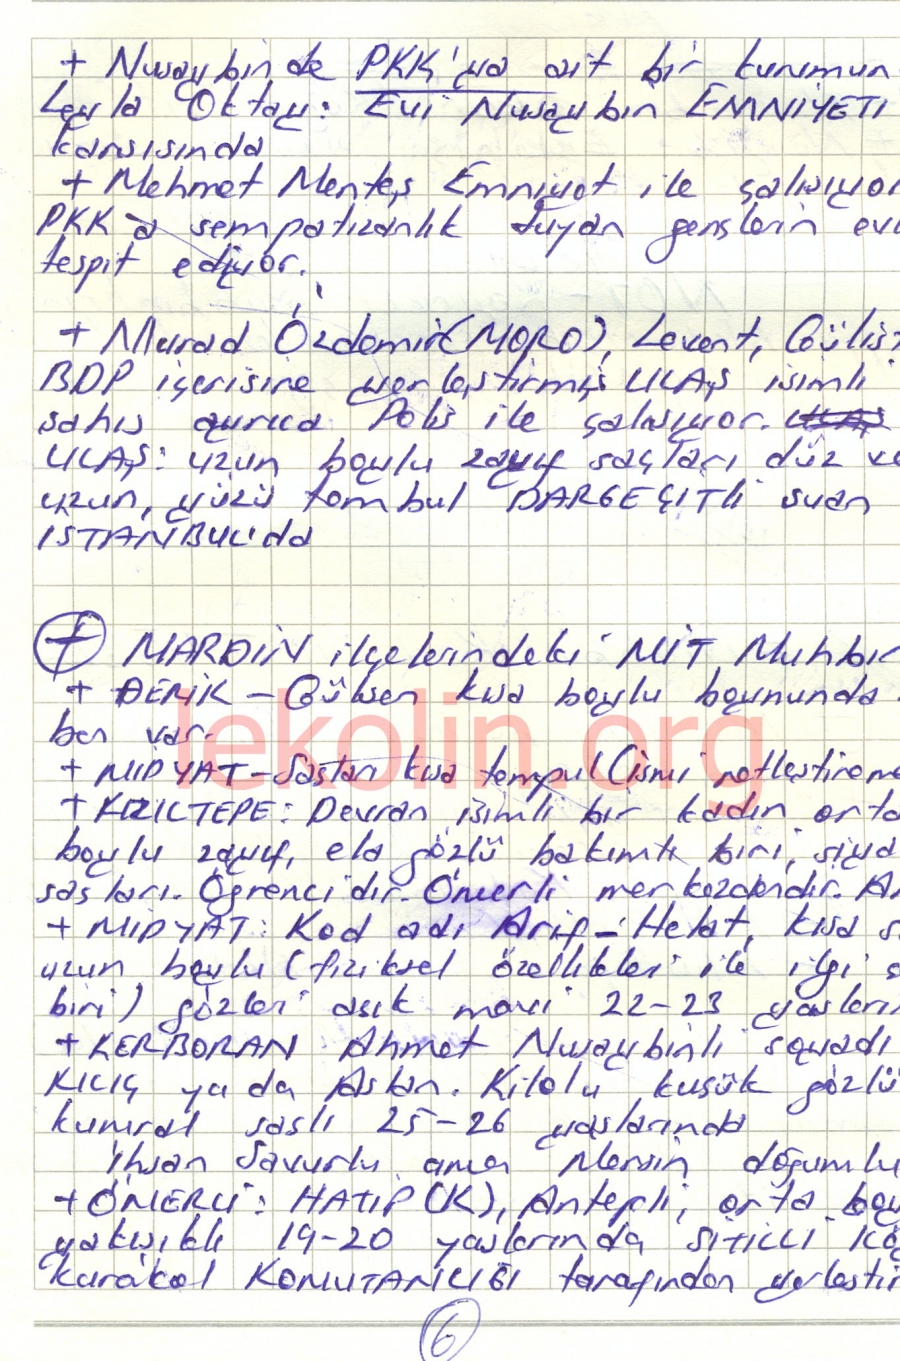 + Nusaybinde PKK'ya ait bir kurumun
Leyla Oktay: Evi Nusaybin EMNİYETİ
karşısında
+ Mehmet Menteş Emniyet ile çalışıyor
PKK-a sempatizanlık duyan gençlerin
tespit ediyor.
+ Murad Özdemir (MORO), Levent,
BDP içerisine yerleştirmiş ULAŞ isimli
şahıs ayrıca Polis ile çalışıyor.
ULAŞ: uzun boylu zayıf saçları düz ve
uzun, yüzü tombul DARGEÇİTli şuan
İSTANBULda
+ MARDİN ilçelerindeki MİT
+ DERİK - Gülsen kısa boylu boynunda
ben var.
+ MİDYAT - Saçları kısa tompul (ismi
+ KIZILTEPE: Devran isimli bir kadın orta
boylu zayıf, ela gözlü bakımlı biri,
saçları. Öğrencidir. Ömerli merkezdendir.
+ MİDYAT: Kod adı Arif - Helat, kısa
uzun boylu (fiziksel özellikleri ile ilgi
biri) gözleri açık mavi 22-23
+ KERBORAN Ahmet Nusaybinli soyadı
KILIÇ ya da Aslan. Kilolu küçük gözlü
kumral saçlı 25-26 yaşlarında
İhsan Savurlu ama Mersin doğumlu
+ ÖMERLİ: HATİP (K), Antepli, orta
yakışıklı 19-20 yaşlarında SİTİLLİ
Karakol KOMUTANLIĞI tarafından
6
lekolin.org